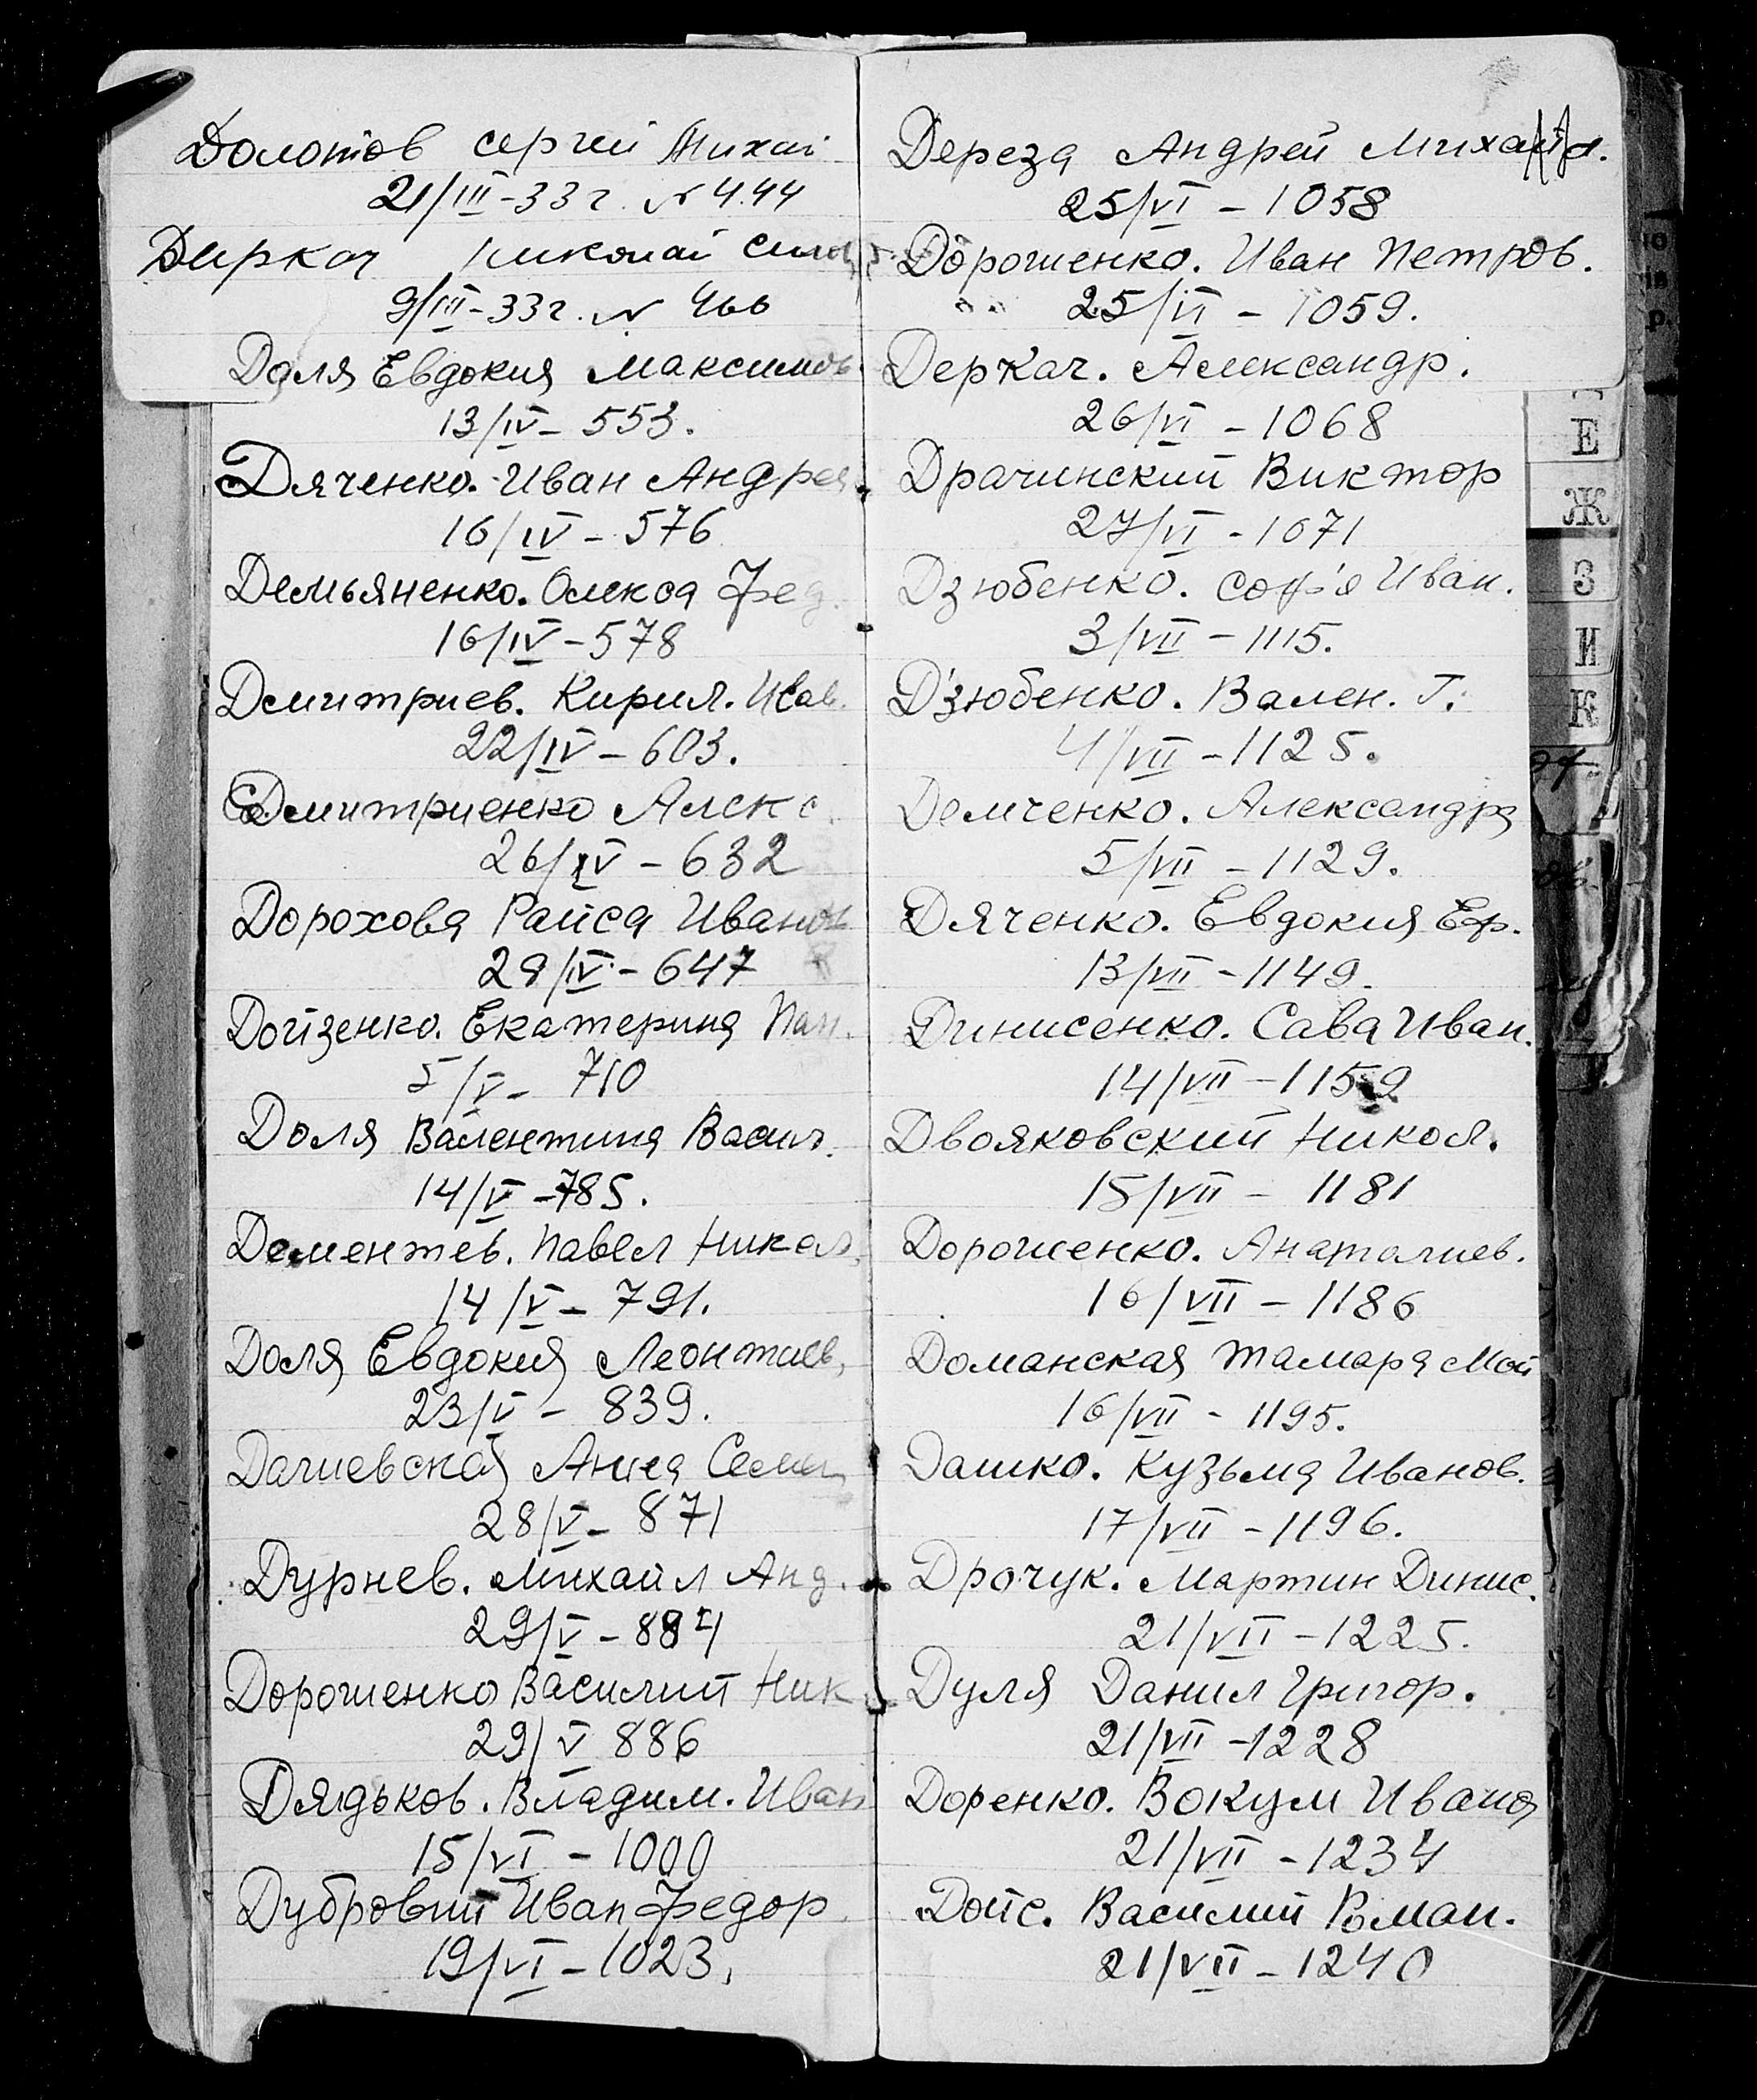 Долотов Сергей Михай
21/III-33г. № 444
Диркач Николай Сим
9/III-33г. № 466
Доля Евдокия Максимов
13/IV- 553.
Дяченко. Иван Андрея.
16/IV - 576
Демьяненко. Олекса Фед.
16/IV - 578
Демитриев. Кирил. Ив
22/IV - 603.
Дмитриенко Алекс.
26/IV - 632
Дорохова Раиса Иванов
29/IV - 647
Дойзенко. Екатерина Пан.
5/V - 710
Доля Валентина Васил.
14/V - 785.
Дементев. Павел Никол.
14/V - 791.
Доля Евдокия Леонтиев,
23/V - 839.
Дачиевская Анна Семен
28/V - 871
Дурнев. Михайл Анд.
29/V - 884
Дорошенко Василий Ник
29/V 886
Дядьков. Владим. Иван
15/VI - 1000
Дубровий Иван Федор
19/VI - 1023.
Дереза Андрей Михайл.
25/VI - 1058
Дорошенко. Иван Петров.
25/VI - 1059.
Деркач. Александр.
26/VI - 1068
Драчинский Виктор
27/VI - 1071
Дзюбенко. Соф'я Иван.
3/VII - 1115.
Дзюбенко. Вален. Г.
4/VII - 1125.
Демченко. Александра
5/VII - 1129.
Дяченко. Евдокия Еф.
13/VII - 1149.
Динисенко. Сава Иван.
14/VII - 1159
Двояковский Никол.
15/VII - 1181
Дорошенко. Анаталиев.
16/VII - 1186
Доманская Тамара Мой
16/VII - 1195.
Дашко. Кузьма Иванов.
17/VII - 1196.
Дрочук. Мартин Динис.
21/VII - 1225.
Дуля Данил Григор.
21/VII - 1228
Доренко. Вокум Иванов
21/VII - 1234
Дойс. Василий Роман.
21/VII - 1240
Е
Ж
З
И
К